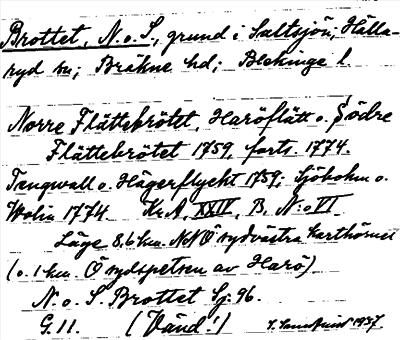 Brottet, N. o. S., grund i Saltsjön; Hälla-
ryd sn; Bräkne hd; Blekinge l.
Norre Flättebrötet, Haröflätt o. Södre
Flättebrötet 1759, forts. 1774.
Tengwall o. Hägerflycht 1759; Sjöbohm o.
Wolin 1774. Kr.A. XXIV, B, N:o VI.
Läge 8,6 km. NNÖ sydvästra karthörnet
(o. 1 km. Ö sydspetsen av Harö)
N. o. S. Brottet Sj. 96.
G. 11. (Vänd!) 1937.